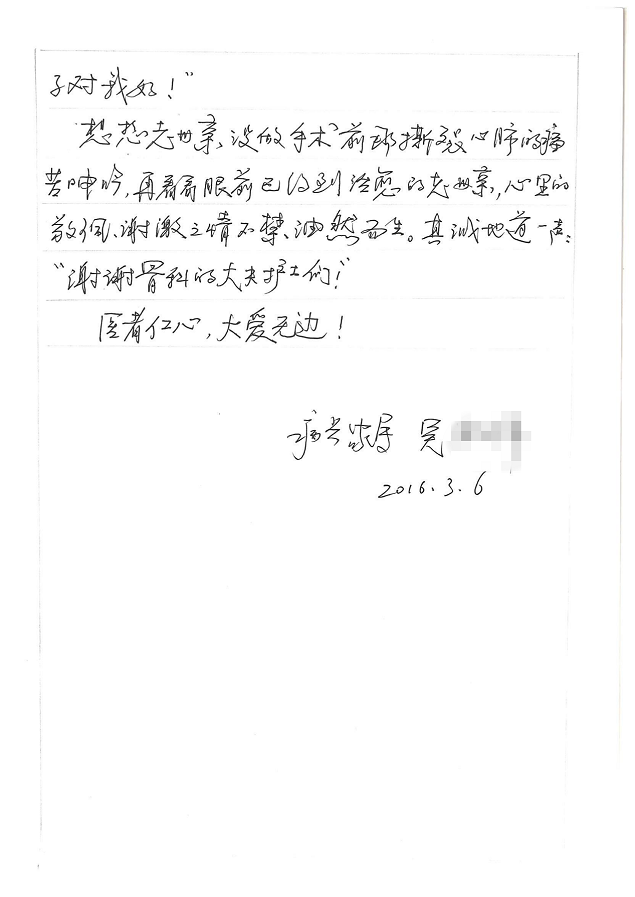 子对我好！”
想想老母亲没做手术前那撕裂心肺的痛
苦呻吟，再看看眼前已得到治愈的老母亲，心里的
敬佩、谢激之情不禁油然而生。真诚地道一声：
“谢谢骨科的大夫护士们！”
医者仁心，大爱无边！
病员家属 吴
2016.3.6